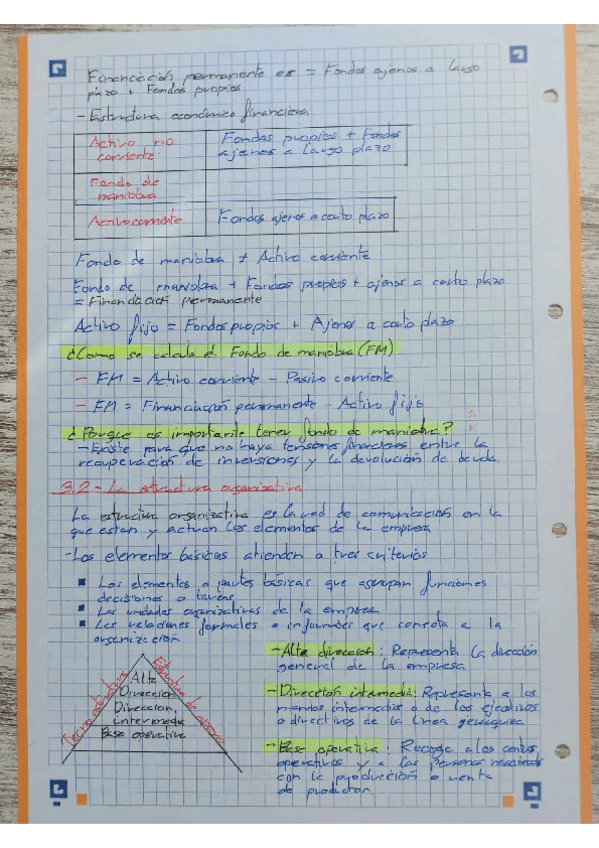 Financiación permanente es = Fondos ajenos a largo
plazo + Fondos propios
- Estructura económico financiera
Activo no corriente
Fondos propios + Fondos ajenos a largo plazo
Fondo de maniobra
Activo corriente
Fondos ajenos a corto plazo
Fondo de maniobra ≠ Activo corriente
Fondo de maniobra + Fondos propios + ajenos a corto plazo
= Financiación permanente
Activo fijo = Fondos propios + Ajenos a corto plazo
¿Como se calcula el Fondo de maniobra (FM)
- FM = Activo corriente - Pasivo corriente
- FM = Financiación permanente - Activo fijo
¿Porque es importante tener fondo de maniobra?
- Existe para que no haya tensiones financieras entre la
recuperación de inversiones y la devolución de deuda.
3.2 - La estructura organizativa
La estructura organizativa es la red de comunicación en la
que estan y actuan los elementos de la empresa
- Los elementos básicos atienden a tres criterios
▪ Los elementos o partes básicas que agrupan funciones
decisiones o tareas
▪ Las unidades organizativas de la empresa
▪ Les relaciones formales o informales que conecta a la
organización
- Alta dirección: Representa la dirección
general de la empresa
- Dirección intermedia: Representa a los
mandos intermedios o de los ejecutivos
o directivos de la línea jerárquica
- Base operativa: Recoge a los centros
operativos y a las personas relacionadas
con la producción o venta
de productos
Tecno estructura
Estructura de apoyo
Alta
Dirección
Direccion
intermedia
Base operativa